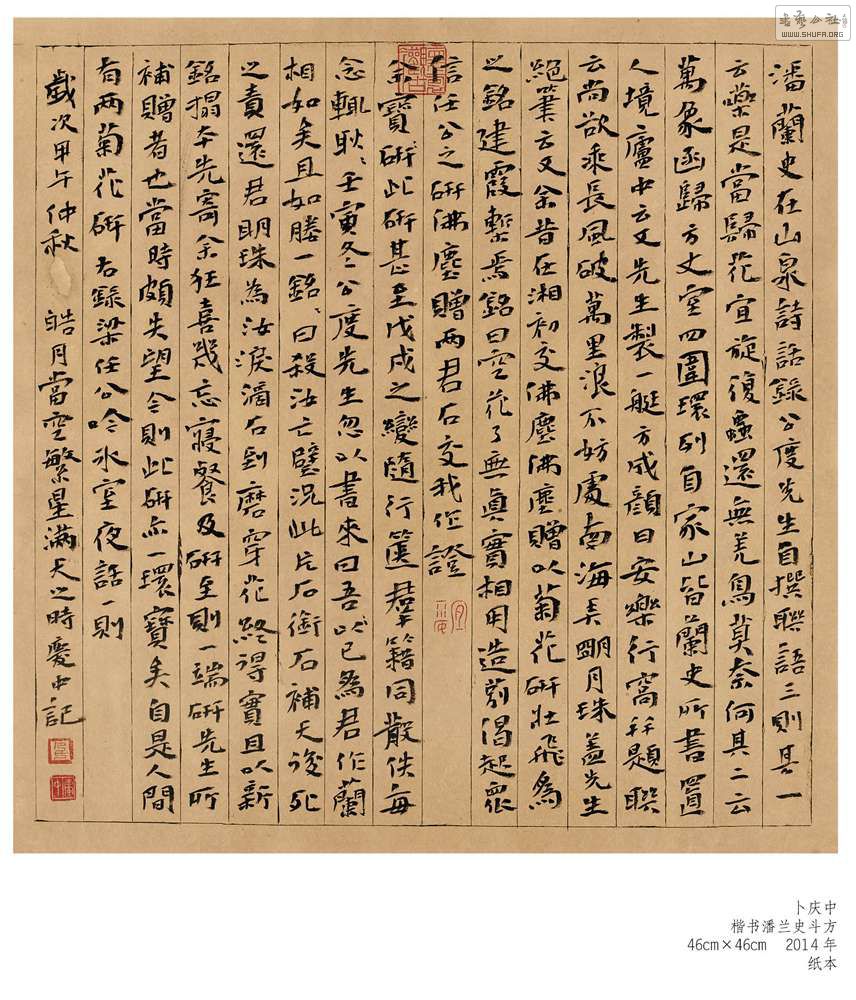 潘蘭史在山泉詩話錄公度先生自撰聯語三則其一
云藥是當歸花宜旋復蟲還無恙鳥莫奈何其二云
萬象函歸方丈室四圍環列自家山皆蘭史所書置
人境廬中云又先生製一艇方成顏曰安樂行窩并題聯
云尚欲乘長風破萬里浪不妨處南海弄明月珠蓋先生
絕筆云又余昔在湘初交佛塵佛塵贈以菊花研壯飛為
之銘建霞槧焉銘曰空花了無真實相用造莂偈起眾
信任公之研佛塵贈兩君石交我作證
余寶研此研甚至戊戌之變隨行篋羣籍同散佚每
念輒耿〻壬寅冬公度先生忽以書來曰吾以已為君作蘭
相如矣且如媵一銘〻曰殺汝亡璧況此片石銜石補天後死
之責還君明珠為汝淚滴石到磨穿花終得實且以新
銘搨本先寄余狂喜幾忘寢餐及研至則一端研先生所
補贈者也當時頗失望今則此研亦一環寶矣自是人間
有兩菊花研右錄梁任公冰室夜話一則
歲次甲午仲秋 皓月當空繁星滿天之時慶中記
书艺公社
WWW.SHUFA.ORG
卜庆中
楷书潘兰史斗方
46cm×46cm 2014年
纸本